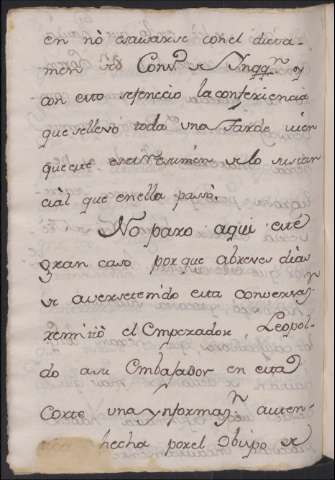 en nò escusarse con el dicta-
men del Conv.º de Ynqq.ⁿ y
con esto se feneció la conferiencia
que se llevò toda una Tarde, bien
que este es un resumen de lo sustan
ciàl que en ella pasò.
No parò aqui este
gran caso porque abreves dias
de averse tenido esta conversaz.ⁿ
remitiò el Emperador Leopol-
do a su Embajador en esta
Corte una Ynformaz.ⁿ auten-
hecha por el Obispo de